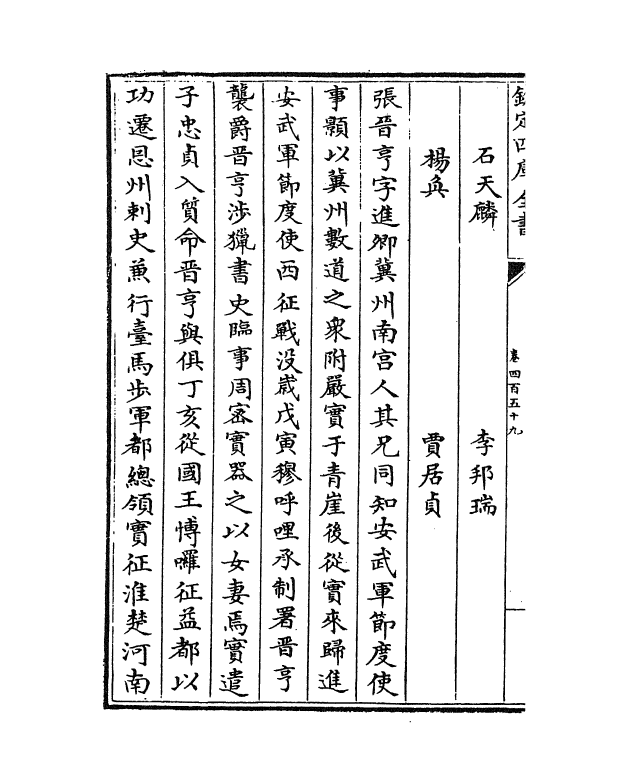 欽定四庫全書
卷四百五十九
石天麟 李邦瑞
楊奐 賈居貞
張晉亨字進卿冀州南宫人其兄同知安武軍節度使
事顥以冀州數道之衆附嚴實于青崖後從實來歸進
安武軍節度使西征戰没嵗戊寅穆呼哩承制署晉亨
襲爵晉亨涉獵書史臨事周宻實器之以女妻焉實遣
子忠貞入質命晉亨與俱丁亥從國王愽囉征益都以
功遷恩州刺史兼行臺馬步軍都總領實征淮楚河南